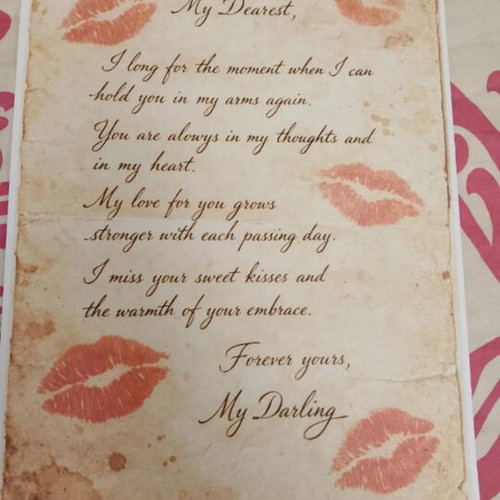 My Dearest,
I long for the moment when I can
hold you in my arms again.
You are alowys in my thoughts and
in my heart.
My love for you grows
stronger with each passing day.
I miss your sweet kisses and
the warmth of your embrace.
Forever yours,
My Darling